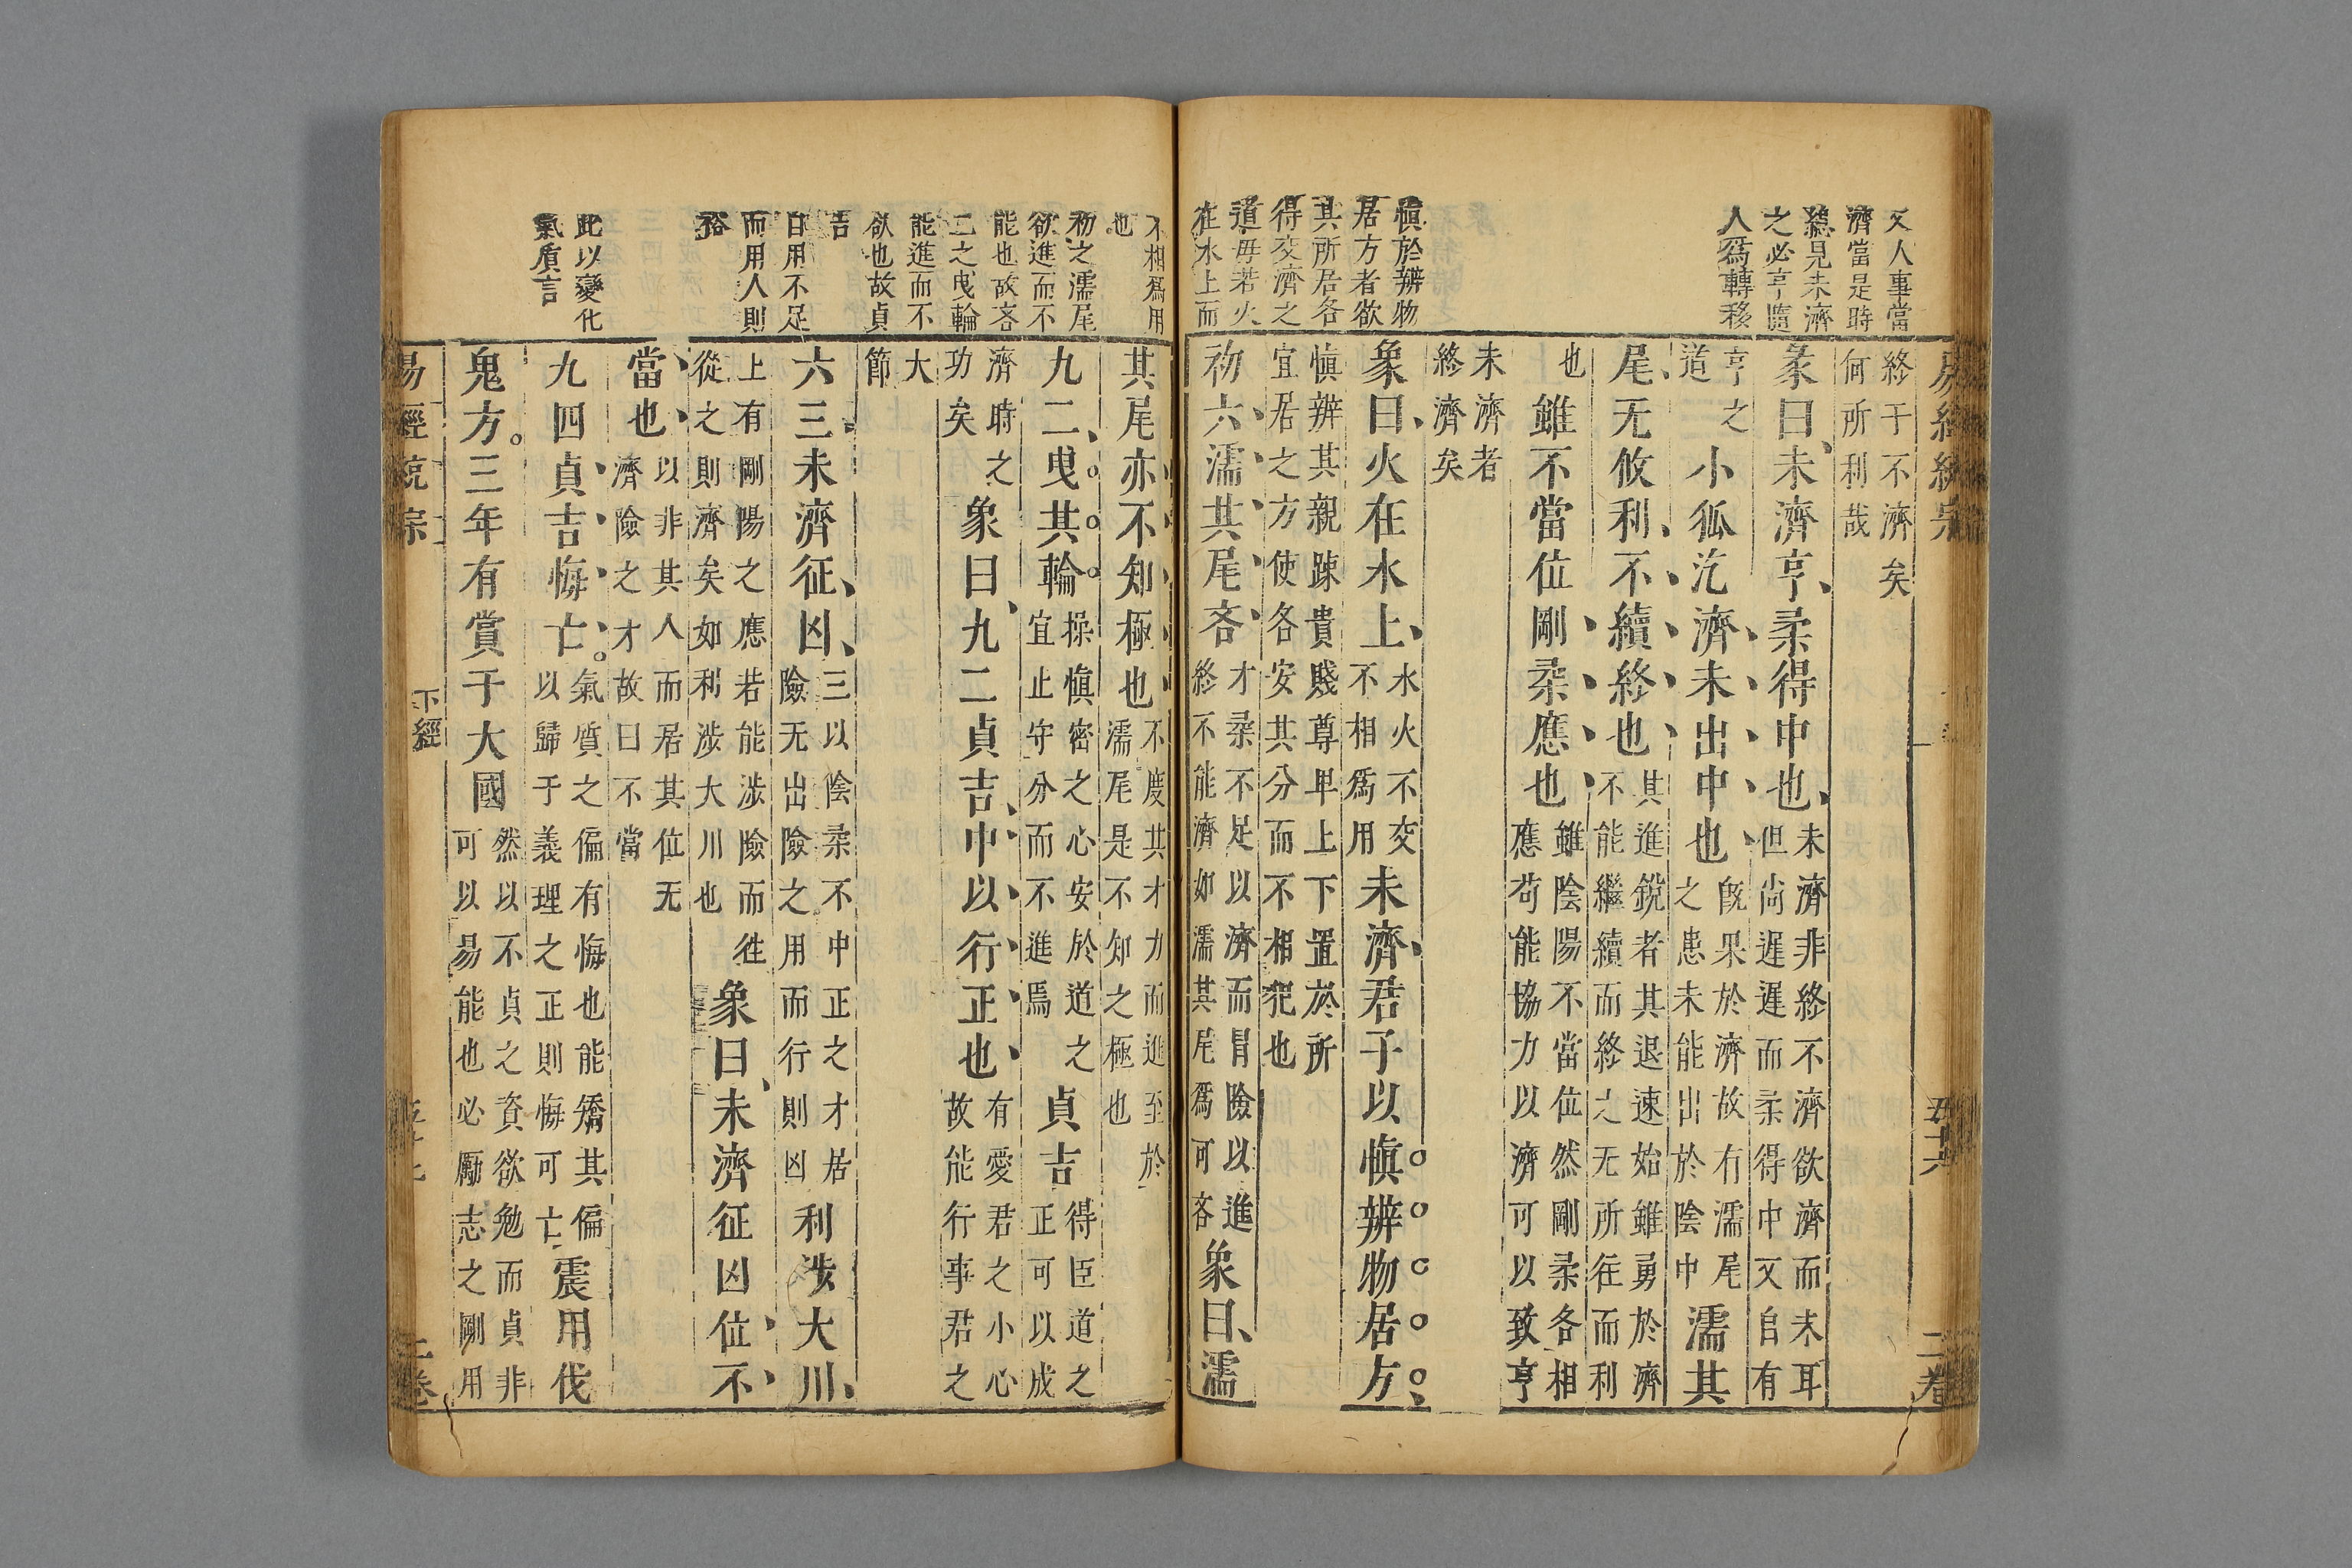 又人事當
濟當是時
總見未濟
之必亨隨
人爲轉移
慎於辨物
居方者欲
其所居各
得交濟之
道毋若火
在水上而
終于不濟矣
何所利哉
彖曰未濟亨柔得中也
未濟非終不濟欲濟而未耳
但尚遲遲而柔得中又自有
亨之
道
小狐汔濟未出中也
既果於濟故有濡尾
之患未能出於陰中
濡其
尾无攸利不續終也
其進銳者其退速始雖勇於濟
不能繼續而終之无所往而利
也
雖不當位剛柔應也
雖陰陽不當位然剛柔各相
應苟能協力以濟可以致亨
未濟者
終濟矣
象曰火在水上
水火不交
不相爲用
未濟君子以慎辨物居方
慎辨其親踈貴賤尊卑上下置於所
宜居之方使各安其分而不相犯也
初六濡其尾吝
才柔不足以濟而冒險以進
終不能濟如濡其尾爲可吝
象曰濡
易經統宗
五十六
二卷
不相爲用
也
初之濡尾
欲進而不
能也故吝
二之曳輪
能進而不
欲也故貞
吉
自用不足
而用人則
裕
此以變化
氣質言
其尾亦不知極也
不度其才力而進至於
濡尾是不知之極也
九二曳其輪
操慎密之心安於道之
宜止守分而不進焉
貞吉
得臣道之
正可以成
濟時之
功矣
象曰九二貞吉中以行正也
有愛君之小心
故能行事君之
大
節
六三未濟征凶
三以陰柔不中正之才居
險无出險之用而行則凶
利涉大川
上有剛陽之應若能涉險而往
從之則濟矣如利涉大川也
象曰未濟征凶位不
當也
以非其人而居其位无
濟險之才故曰不當
九四貞吉悔亡
氣質之偏有悔也能矯其偏
以歸于義理之正則悔可亡
震用伐
鬼方三年有賞于大國
然以不貞之資欲勉而貞非
可以易能也必勵志之剛用
易經統宗
下經
二卷